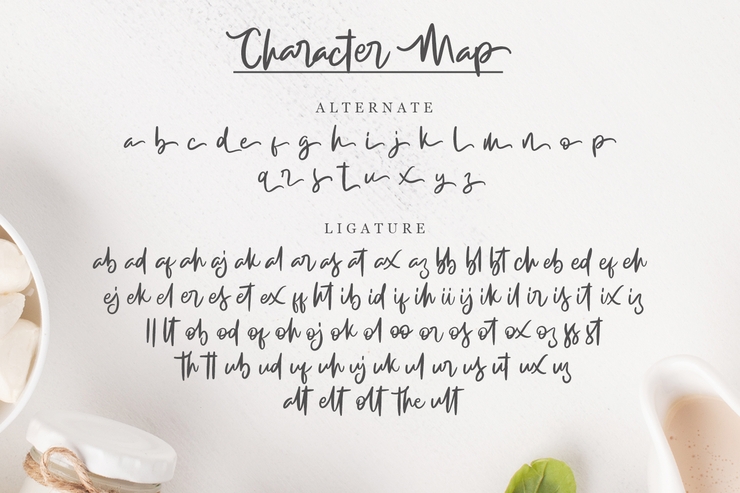 Character Map
ALTERNATE
a b c d e f g h i j k l m n o p
q r s t u x y z
LIGATURE
ab ad af ah aj ak al ar as at ax az bb bl bt ch eb ed ef eh
ej ek el er es et ex ff ht ib id if ih ii ij ik il ir is it ix iz
ll lt ob od of oh oj ok ol oo or os ot ox oz ss st
th tt ub ud uf uh uj uk ul ur us ut ux uz
alt elt olt the ult